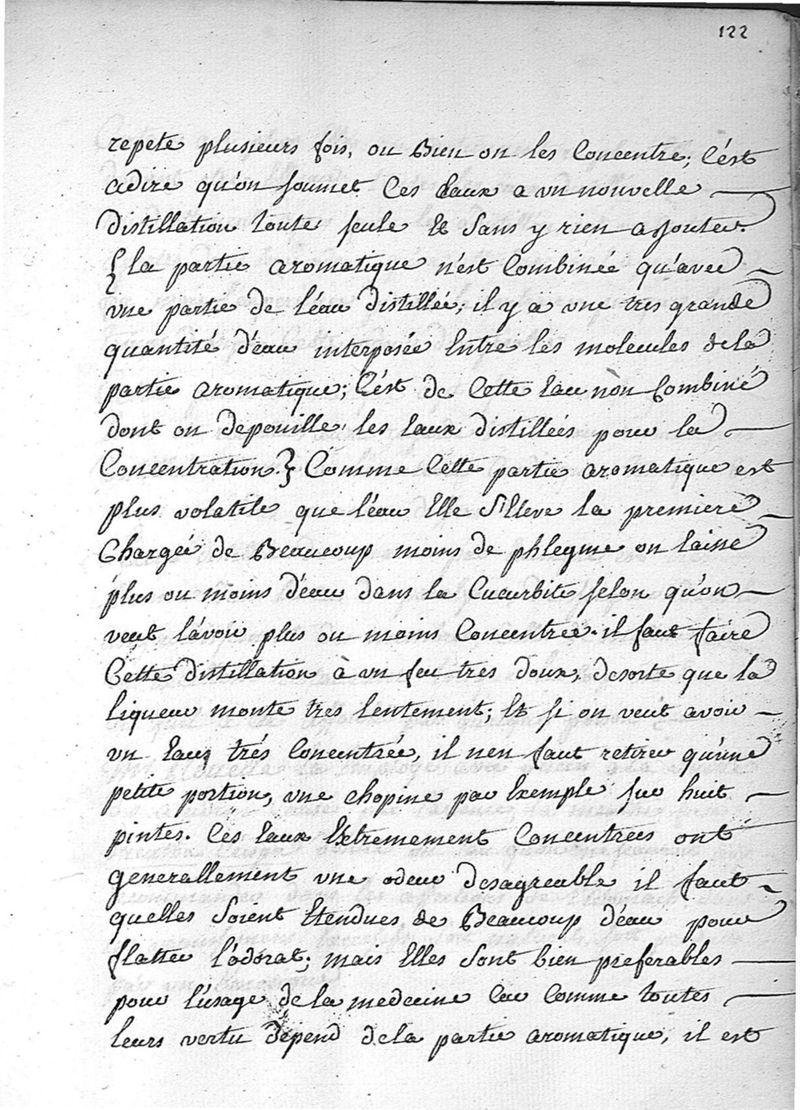 122
repete plusieurs fois, ou Bien on les Concentre; C'est
adire qu'on soumet Ces Eaux a vn nouvelle
distillation toute seule Et Sans y rien ajouter.
{ la partie aromatique n'est Combinée qu'avec
vne partie de l'éau distillée; il y a vne tres grande
quantité d'eau interposée Entre les molecules dela
partie aromatique; C'ést de Cette Eau non Combiné
dont on depouille les Eaux distillées pour la
Concentration. } Comme Cette partie aromatique est
plus volatile que l'éau Elle S'Eleve la premiere
Chargée de Beaucoup moins de phlegme on laisse
plus ou moins d'eau dans la Cucurbite selon qu'on
veut l'avoir plus ou moins Concentree. il faut faire
Cette distillation à vn feu tres doux, desorte que la
liqueur monte tres lentement; Et si on veut avoir
vn Eaux trés Concentrée, il nen faut retirer qu'une
petite portion, vne chopine par Exemple sur huit
pintes. Ces Eaux Extremement Concentrees ont
generallement vne odeur desagreable il faut
quelles Soient Etendues de Beaucoup d'eau pour
flatter l'odorat; mais Elles Sont bien preferables
pour l'usage de la medecine Car Comme toutes
leurs vertu depend dela partie aromatique, il est